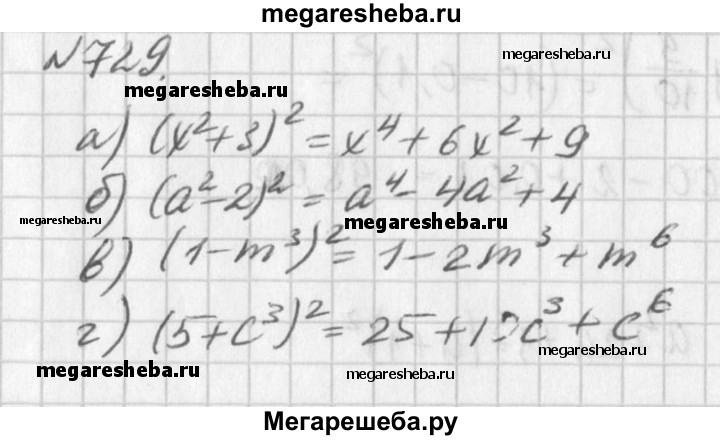 megaresheba.ru
N 729.
megaresheba.ru
megaresheba.ru
а) (x²+3)² = x⁴ + 6x² + 9
б) (a²-2)² = a⁴ - 4a² + 4
megaresheba.ru
megaresheba.ru
в) (1-m³)² = 1 - 2m³ + m⁶
г) (5+c³)² = 25 + 10c³ + c⁶
megaresheba.ru
megaresheba.ru
megaresheba.ru
Мегарешеба.ру